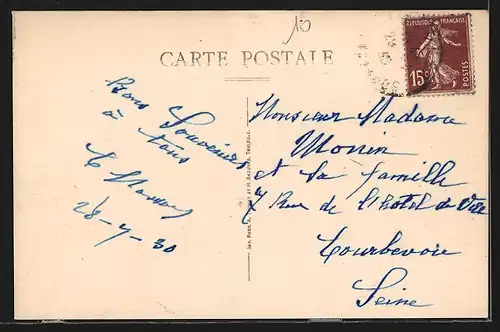 10
RÉPUBLIQUE FRANÇAISE
15c
POSTES
CARTE POSTALE
Bons Souvenirs
à tous
28-7-30
Monsieur Madame
Monin
et sa famille
7 Rue de l'hôtel de Ville
Courbevoie
Seine